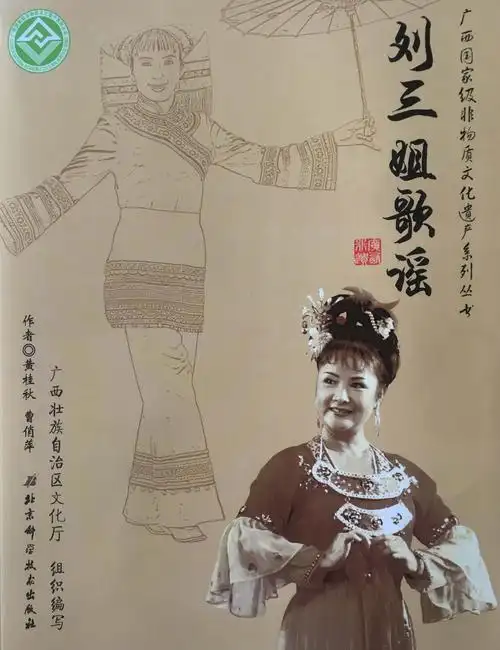 广西国家级非物质文化遗产系列丛书
刘三姐歌谣
广西壮族自治区文化厅 组织编写
作者◎黄桂秋 曹俏萍
北京科学技术出版社